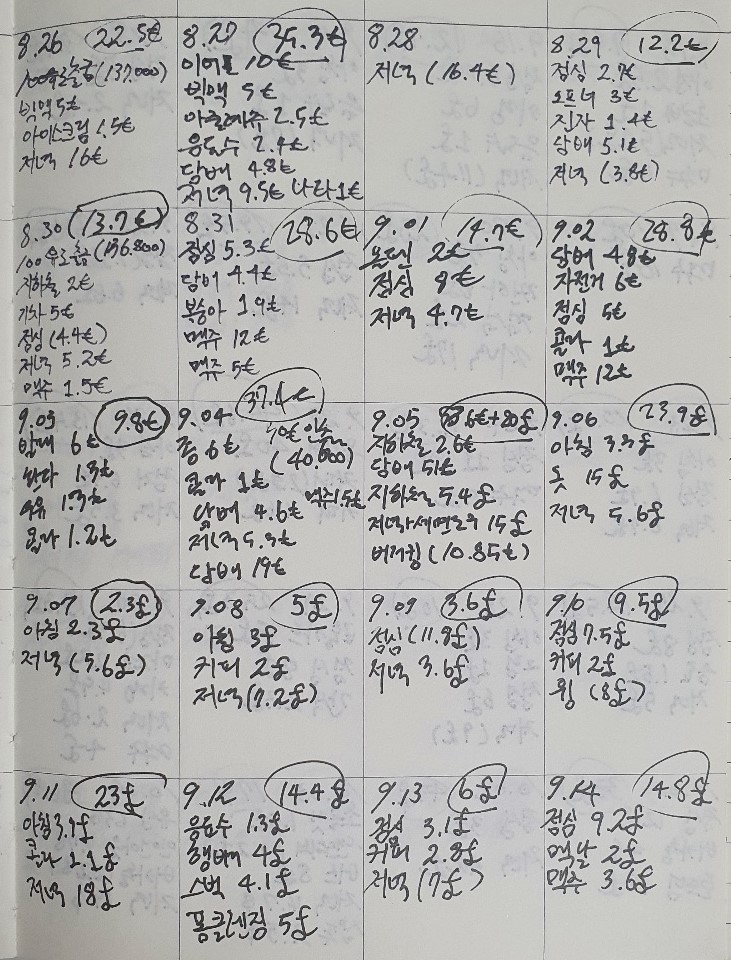 8.26 22.5€
100유로출금(137.000)
빅맥 5€
아이스크림 1.5€
저녁 16€
8.27 35.3€
이어폰 10€
빅맥 5€
2.5€
음료수 2.4€
담배 4.8€
저녁 9.5€ 나타1€
8.28
저녁 (16.4€)
8.29 12.2€
점심 2.7€
오프너 3€
과자 1.4€
담배 5.1€
저녁 (3.8€)
8.30 13.7€
100유로출금(136.800)
지하철 2€
기차 5€
점심 (4.4€)
저녁 5.2€
맥주 1.5€
8.31 28.6€
점심 5.3€
담배 4.4€
복숭아 1.9€
맥주 12€
맥주 5€
9.01 14.7€
2€
점심 8€
저녁 4.7€
9.02 28.8€
담배 4.8€
자전거 6€
점심 5€
콜라 1€
맥주 12€
9.03 9.8€
담배 6€
1.3€
우유 1.3€
콜라 1.2€
9.04 37.4€
6€
(40.000)
콜라 1€
맥주1.5€
담배 4.6€
저녁 5.3€
담배 19€
9.05
지하철 2.6€
담배 51€
지하철 5.4£
저녁, 15£
버거킹 (10.85€)
9.06 23.9£
아침 3.3£
옷 15£
저녁 5.6£
9.07 2.3£
아침 2.3£
저녁 (5.6£)
9.08 5£
아침 3£
커피 2£
저녁 (7.2£)
9.09 3.6£
점심 (11.8£)
저녁 3.6£
9.10 9.5£
점심 7.5£
커피 2£
윙 (8£)
9.11 23£
아침 3.9£
콜라 1.1£
저녁 18£
9.12 14.4£
음료수 1.3£
햄버거 4£
스벅 4.1£
폼클렌징 5£
9.13 6£
점심 3.1£
커피 2.8£
저녁 (7£)
9.14 14.8£
점심 9.2£
2£
맥주 3.6£